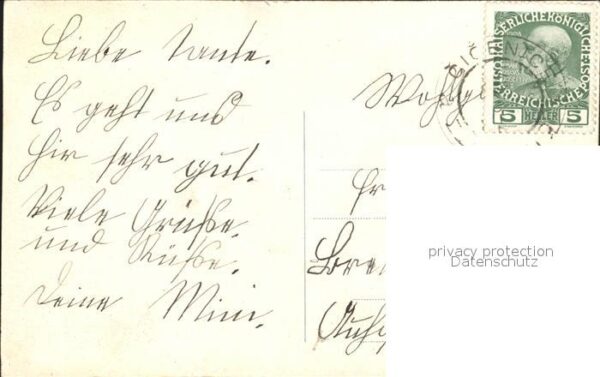 Liebe Tante.
Es geht uns
hir sehr gut.
Viele Grüße
und Küße.
Deine Mini.
Wohlge
Fr
KAISERLICHE KÖNIGLICHE ÖSTERREICHISCHE POST
5 HELLER 5
privacy protection
Datenschutz